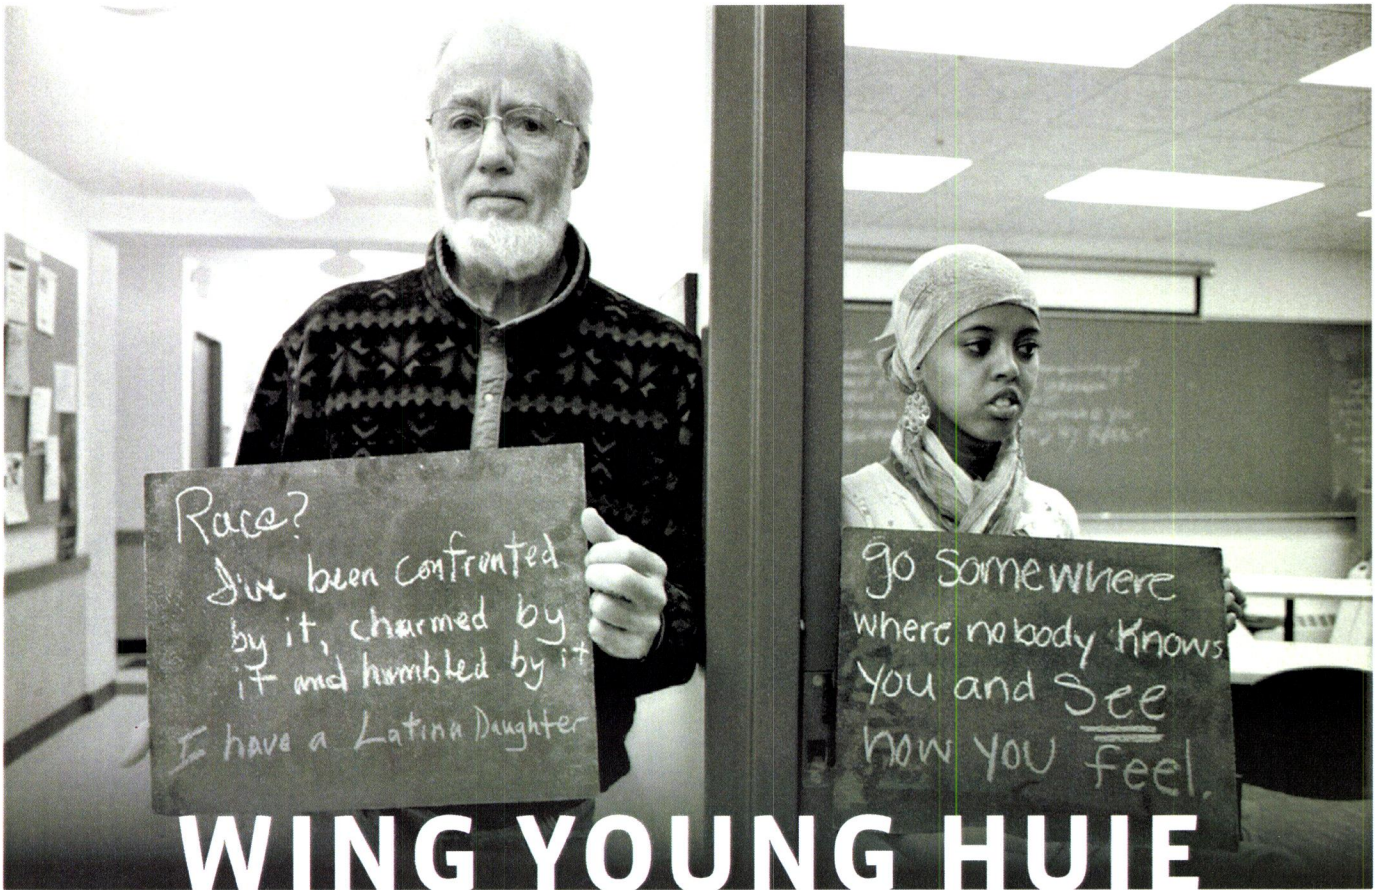 Race?
I've been confronted
by it, charmed by
it and humbled by it
I have a Latina Daughter
go somewhere
where nobody knows
you and See
how you feel.
WING YOUNG HUIE